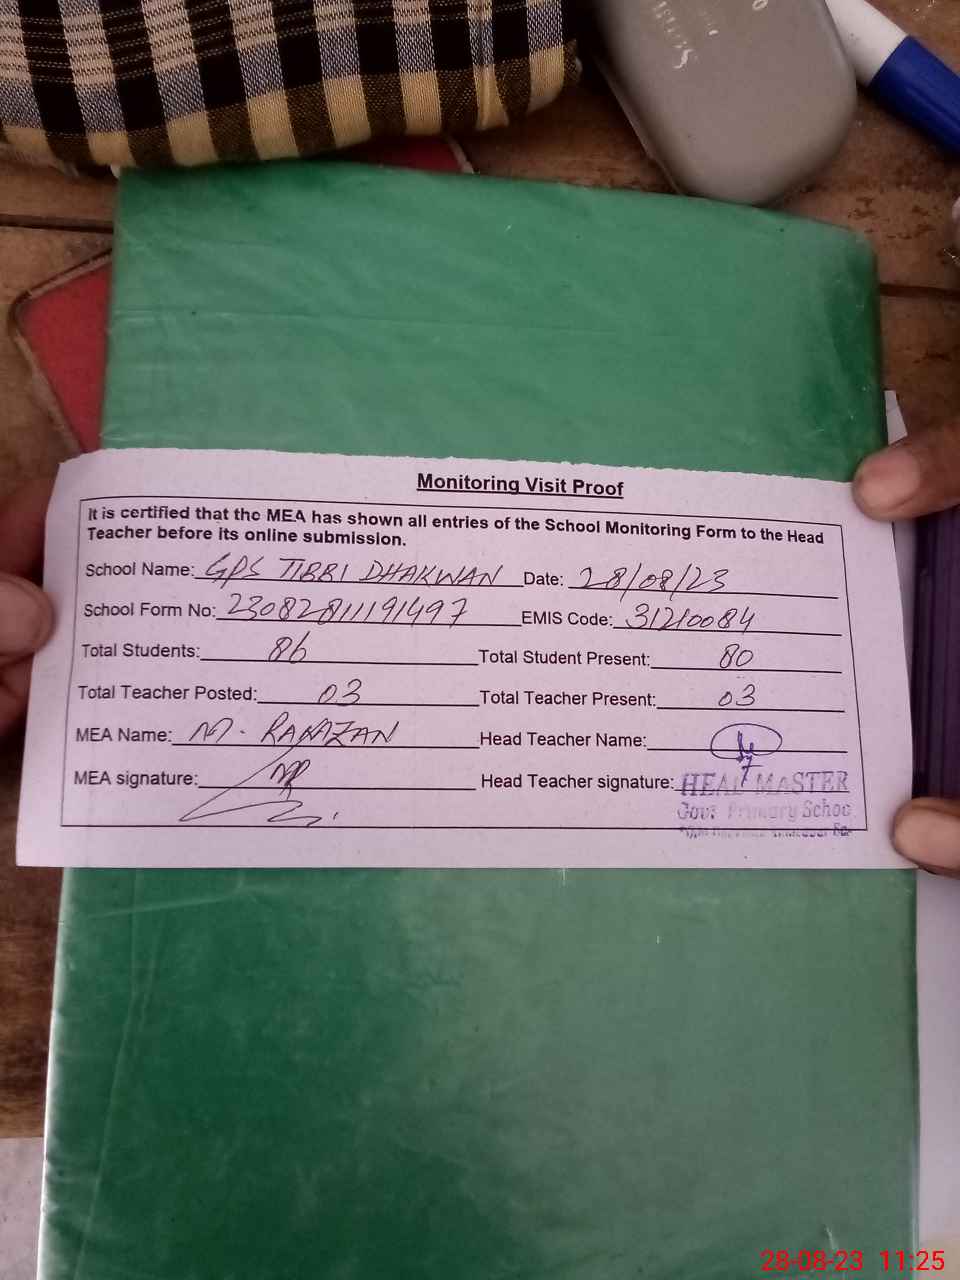 Monitoring Visit Proof
It is certified that the MEA has shown all entries of the School Monitoring Form to the Head
Teacher before its online submission.
School Name: GPS TIBBI DHAKWAN Date: 28/08/23
School Form No: 23082811191497 EMIS Code: 31210084
Total Students: 86 Total Student Present: 80
Total Teacher Posted: 03 Total Teacher Present: 03
MEA Name: M. RAMZAN Head Teacher Name:
MEA signature: Head Teacher signature:
HEAD MASTER
Govt Primary School
28-08-23 11:25